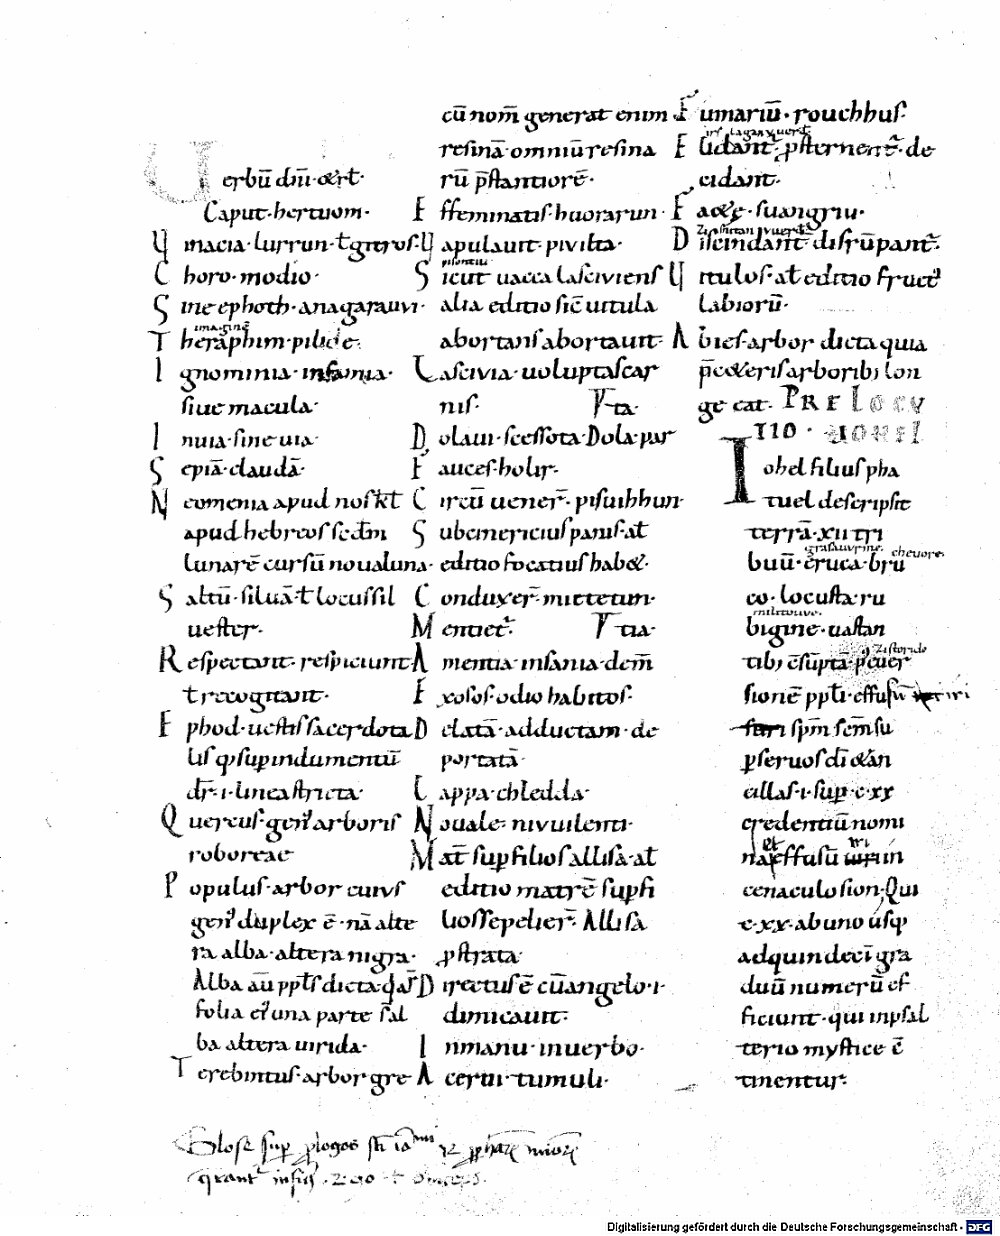 Verbū dn̄i · &rł ·
Caput · hertuom ·
macia · lurrun · ł giros ·
Choro · modio ·
Sine ephoth · ana garauvi ·
ima gine
Theraphim · pilide ·
Ignominia · infamia ·
siue macula ·
Inuia · sine uia ·
Sepiā · claudā ·
Neomenia apud nos kł
apud hebreos scdm̄
lunarē cursū noua luna ·
Saltū · siluā · ł locus sil
uester ·
Respectant · respiciunt
ł recognant ·
Ephod · uestis sacerdota
lis sup indumentū
dr̄ · i · linea stricta ·
Quercus · gen' arboris
roboreae
Populus · arbor cuius
gen' duplex ē · nā alte
ra alba · altera nigra ·
Alba au ppłs dicta qd
folia ei' una parte sal
ba altera uirida ·
Terebintus · arbor gre
cū nom̄ generat enim
resinā · omniū resina
rū p̄stantiorē ·
Effeminatis · huorarun ·
Vapulauit · pivilta ·
pisontiu
Sicut uacca lasciviens
alia editio sic̄ uitula
abortans abortauit ·
Lascivia · uoluptas car
nis · V ta ·
Dolaui · scessota · Dola par
Fauces · holir ·
Circū uener̄ · pisuihhun ·
Subcinericius panis · ał
editio focatius hab& ·
Conduxer̄ · mittetun ·
Mentiet̄ · V tia ·
Amentia · insania · dem̄
Exosos · odio habitos ·
Delatā · adductam · de
portatā ·
Lappa · chledda ·
Nouale · nivuilenti ·
Mat̄ sup filios allisa · ał
editio matrē sup fi
lios sepelier̄ · Allisa
pstrata ·
Directus ē cū angelo · i ·
dimicauit ·
In manu · in uerbo ·
Acerui · tumuli ·
Fumariū · rouchhus ·
Elidant̄ · psternent̄ · de
cidant ·
Fac&ę · suangriu ·
Discindant̄ · disrūpant̄ ·
Vitulos · ał editio fruct'
labiorū ·
Abies · arbor dicta quia
p̄ceteris arborib; lon
ge eat · PRELOCV
TIO · IOHEL
Iohel filius pha
tuel descripsit
terrā · xii tri
grasauvrme · chevore ·
buū · eruca · bru
co · locusta · ru
militouve ·
bigine · uastan
tib; ēsūptā · p̄euer
sionē ppłi · effusū
spm̄ scm̄ su
p seruos dī & an
cillas · i · sup · c · xx
credentiū nomi
na effusū in
cenaculo sion · Qui
c · xx · ab uno usq
ad quindecī gra
duū numerū ef
ficiunt · qui in psal
terio mystice ē
tinentur ·
Glose sup prologos
Digitalisierung gefördert durch die Deutsche Forschungsgemeinschaft - DFG